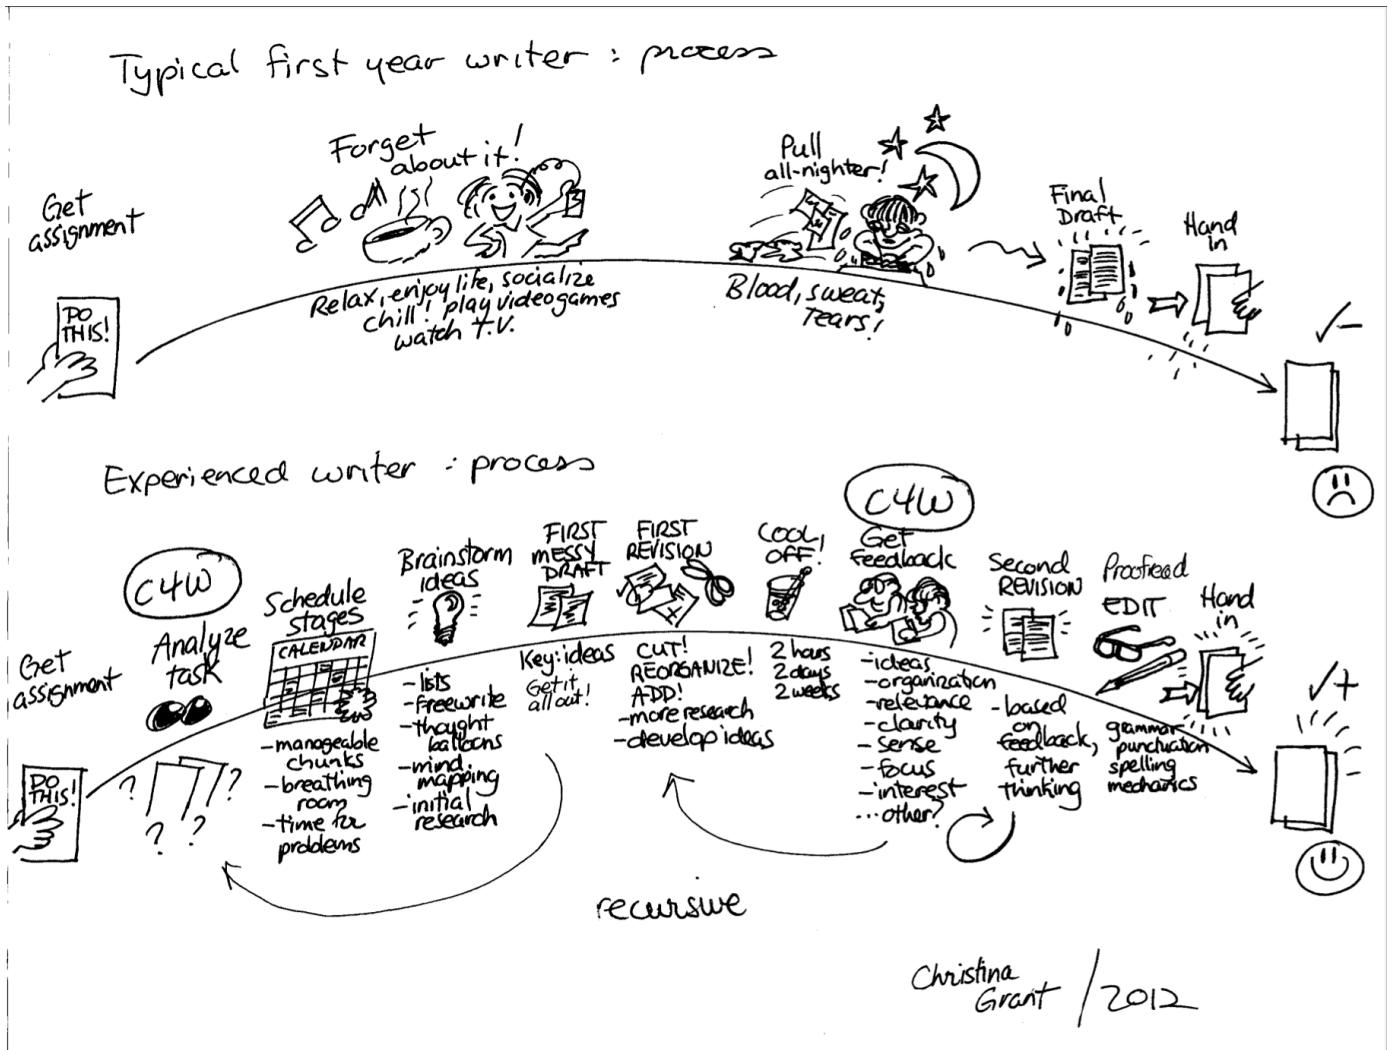 Typical first year writer : process
Get
assignment
DO
THIS!
Forget
about it!
Relax, enjoy life, socialize
chill! play video games
watch T.V.
Pull
all-nighter!
Blood, sweat,
tears!
Final
Draft
Hand
in
✓-
Experienced writer : process
Get
assignment
DO
THIS!
C4W
Analyze
task
? ?
? ?
Schedule
stages
CALENDAR
-manageable
chunks
-breathing
room
-time for
problems
Brainstorm
ideas
-lists
-freewrite
-thought
balloons
-mind
mapping
-initial
research
FIRST
MESSY
DRAFT
Key: ideas
Get it
all out!
FIRST
REVISION
CUT!
REORGANIZE!
ADD!
-more research
-develop ideas
COOL
OFF!
2 hours
2 days
2 weeks
C4W
Get
feedback
-ideas
-organization
-relevance
-clarity
-sense
-focus
-interest
...other?
Second
REVISION
-based
on
feedback,
further
thinking
Proofread
EDIT
grammar
punctuation
spelling
mechanics
Hand
in
✓+
recursive
Christina
Grant / 2012